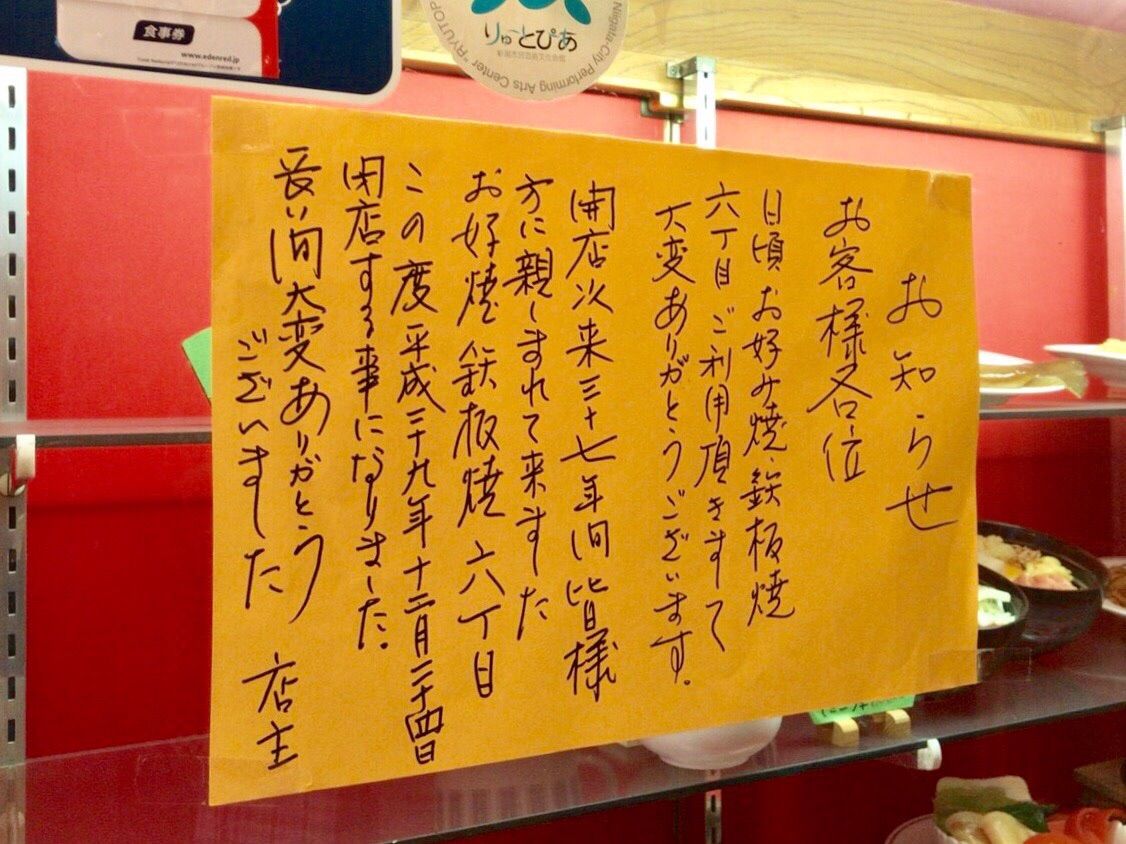 食事券
www.edenred.jp
りゅーとぴあ
新潟市民芸術文化会館
Niigata-City Performing Arts Center "RYUTOP
お知らせ
お客様各位
日頃お好み焼・鉄板焼
六丁目ご利用頂きまして
大変ありがとうございます。
開店次来三十七年間皆様
方に親しまれて来ました
お好焼鉄板焼六丁目
この度平成二十九年十二月二十四日
閉店する事になりました。
長い間大変ありがとう
ございました
店主